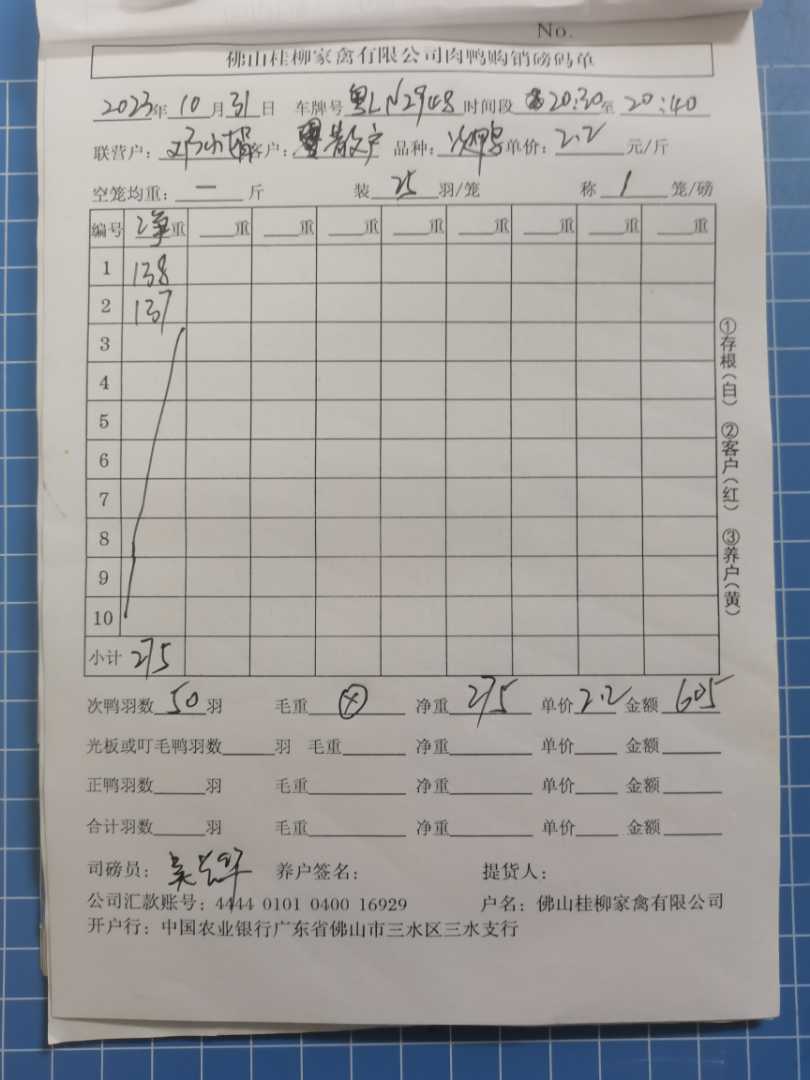 No.
佛山桂柳家禽有限公司肉鸭购销磅码单
2023年 10月31日 车牌号 粤LN2948 时间段 20:30至 20:40
联营户：邓小娟 客户：散户 品种：次鸭 单价：2.2 元/斤
空笼均重：一 斤 装 25 羽/笼 称 1 笼/磅
编号 净重 重 重 重 重 重 重 重 重
1 138
2 137
3
4
5
6
7
8
9
10
小计 275
次鸭羽数 50 羽 毛重 净重 275 单价 2.2 金额 605
光板或叮毛鸭羽数 羽 毛重 净重 单价 金额
正鸭羽数 羽 毛重 净重 单价 金额
合计羽数 羽 毛重 净重 单价 金额
司磅员： 养户签名： 提货人：
公司汇款账号：4444 0101 0400 16929 户名：佛山桂柳家禽有限公司
开户行：中国农业银行广东省佛山市三水区三水支行
①存根（白） ②客户（红） ③养户（黄）